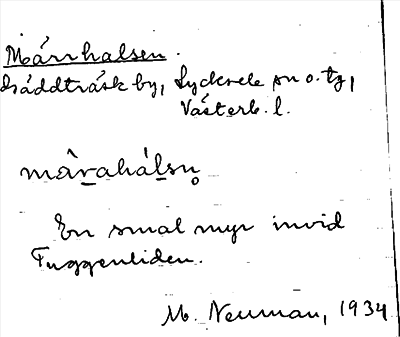 Märrhalsen.
Gäddträsk by, Lycksele sn o. tg,
Västerb. l.
märahálsn̥
En smal myr invid
Tuggenliden.
M. Neuman, 1934